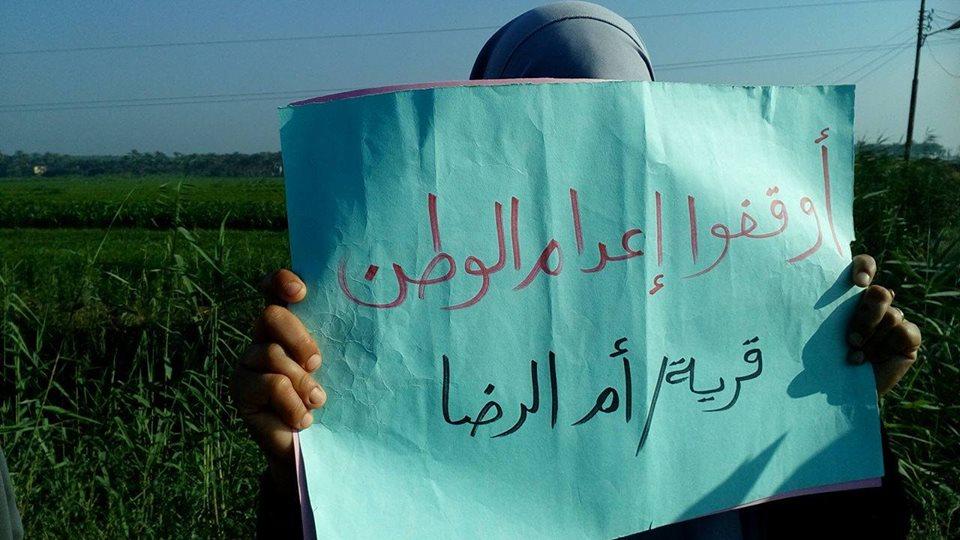 أوقفوا إعدام الوطن
قرية/ أم الرضا